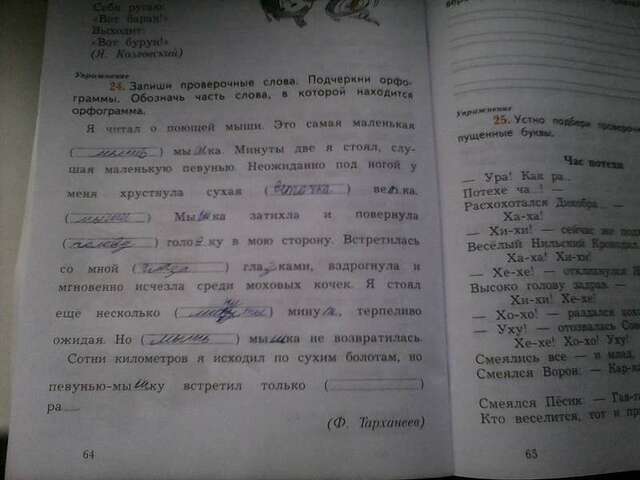 Себя ругаю:
«Вот баран!»
Выходит:
«Вот бурун!»
(Я. Козловский)
Упражнение
24. Запиши проверочные слова. Подчеркни орфо-
граммы. Обозначь часть слова, в которой находится
орфограмма.
Я читал о поющей мыши. Это самая маленькая
(мышь) мышка. Минуты две я стоял, слу-
шая маленькую певунью. Неожиданно под ногой у
меня хрустнула сухая (веточка) ветка.
(мышка) Мышка затихла и повернула
(голову) головку в мою сторону. Встретилась
со мной (глаза) глазками, вздрогнула и
мгновенно исчезла среди моховых кочек. Я стоял
ещё несколько (минуты) минут, терпеливо
ожидая. Но (мышь) мышка не возвратилась.
Сотни километров я исходил по сухим болотам, но
певунью-мышку встретил только ( )
ра...
(Ф. Тарханеев)
64
Упражнение
25. Устно подбери проверо
пущенные буквы.
Час потехи
— Ура! Как ра...
Потехе ча...! —
Расхохотался Дикобра... —
Ха-ха!
— Хи-хи! — сейчас же под
Весёлый Нильский Крокоди
Ха-ха! Хи-хи!
— Хе-хе! — откликнулся
Высоко голову задрав. —
Хи-хи! Хе-хе!
— Хо-хо! — раздался
— Уху! — отозвалась Сова
Хе-хе! Хо-хо! Уху!
Смеялись все — и млад,
Смеялся Ворон: — Кар-ка
Смеялся Пёсик: — Гав-га
Кто веселится, тот и пр
65